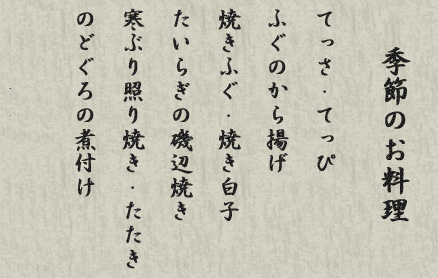 季節のお料理
てっさ・てっぴ
ふぐのから揚げ
焼きふぐ・焼き白子
たいらぎの磯辺焼き
寒ぶり照り焼き・たたき
のどぐろの煮付け